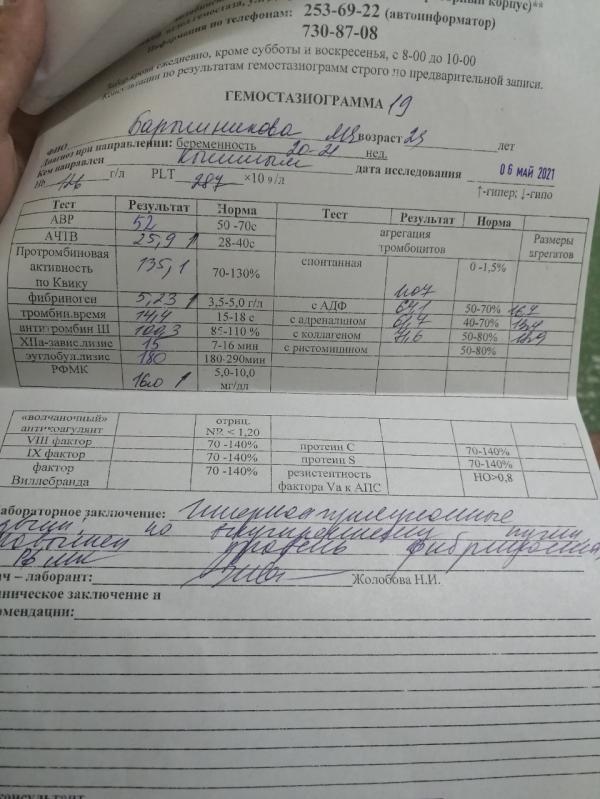 253-69-22 (автоинформатор)
Информация по телефонам:
730-87-08
ежедневно, кроме субботы и воскресенья, с 8-00 до 10-00
Консультации по результатам гемостазиограмм строго по предварительной записи.
ГЕМОСТАЗИОГРАММА 19
ФИО возраст 23 лет
Диагноз при направлении: беременность 20-21 нед.
Кем направлен Кыштым дата исследования 06 МАЙ 2021
Hb 126 г/л PLT 287 ×10 9/л ↑-гипер; ↓-гипо
Тест Результат Норма Тест Результат Норма
АВР 52 50 -70с агрегация тромбоцитов Размеры агрегатов
АЧТВ 25,9 28-40с
Протромбиновая активность по Квику 135,1 70-130% спонтанная 1,07 0 -1,5%
фибриноген 5,23 3,5-5,0 г/л с АДФ 50-70% 16,7
тромбин.время 14,4 15-18 с с адреналином 40-70%
антитромбин III 85-110 % с коллагеном 71,6 50-80%
XIIа-завис.лизис 15 7-16 мин с ристомицином 50-80%
эуглобул.лизис 180 180-290мин
РФМК 16,0 5,0-10,0 мг/дл
«волчаночный» антикоагулянт отриц. NR < 1,20
VIII фактор 70 -140% протеин С 70-140%
IX фактор 70 -140% протеин S 70-140%
фактор Виллебранда 70 -140% резистентность фактора Va к АПС НО>0,8
Лабораторное заключение: Гиперкоагуляционные
по внутреннему пути
уровень фибриногена,
РФМК
ач – лаборант: Жолобова Н.И.
ническое заключение и
омендации: